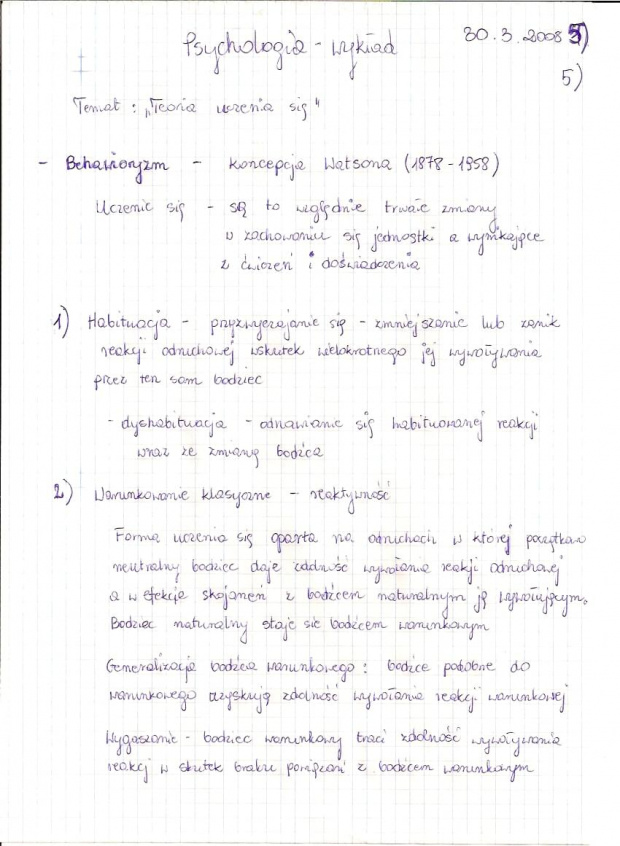 Psychologia - wykład 30.3.2008 5)
5)
Temat : „Teoria uczenia się"
- Behawioryzm - koncepcja Watsona (1878-1958)
Uczenie się - są to względnie trwałe zmiany
w zachowaniu się jednostki a wynikające
z ćwiczeń i doświadczenia
1) Habituacja - przyzwyczajanie się - zmniejszanie lub zanik
reakcji odruchowej wskutek wielokrotnego jej wywoływania
przez ten sam bodziec
- dyshabituacja - odnawianie się habituowanej reakcji
wraz ze zmianą bodźca
2) Warunkowanie klasyczne - reaktywność
Forma uczenia się oparta na odruchach w której początkowo
neutralny bodziec daje zdolność wywołania reakcji odruchowej
a w efekcie skojarzeń z bodźcem naturalnym ją wywołującym.
Bodziec naturalny staje sie bodźcem warunkowym
Generalizacja bodźca warunkowego : bodźce podobne do
warunkowego uzyskują zdolność wywołania reakcji warunkowej
Wygaszanie - bodziec warunkowy traci zdolność wywoływania
reakcji w skutek braku powiązań z bodźcem warunkowym